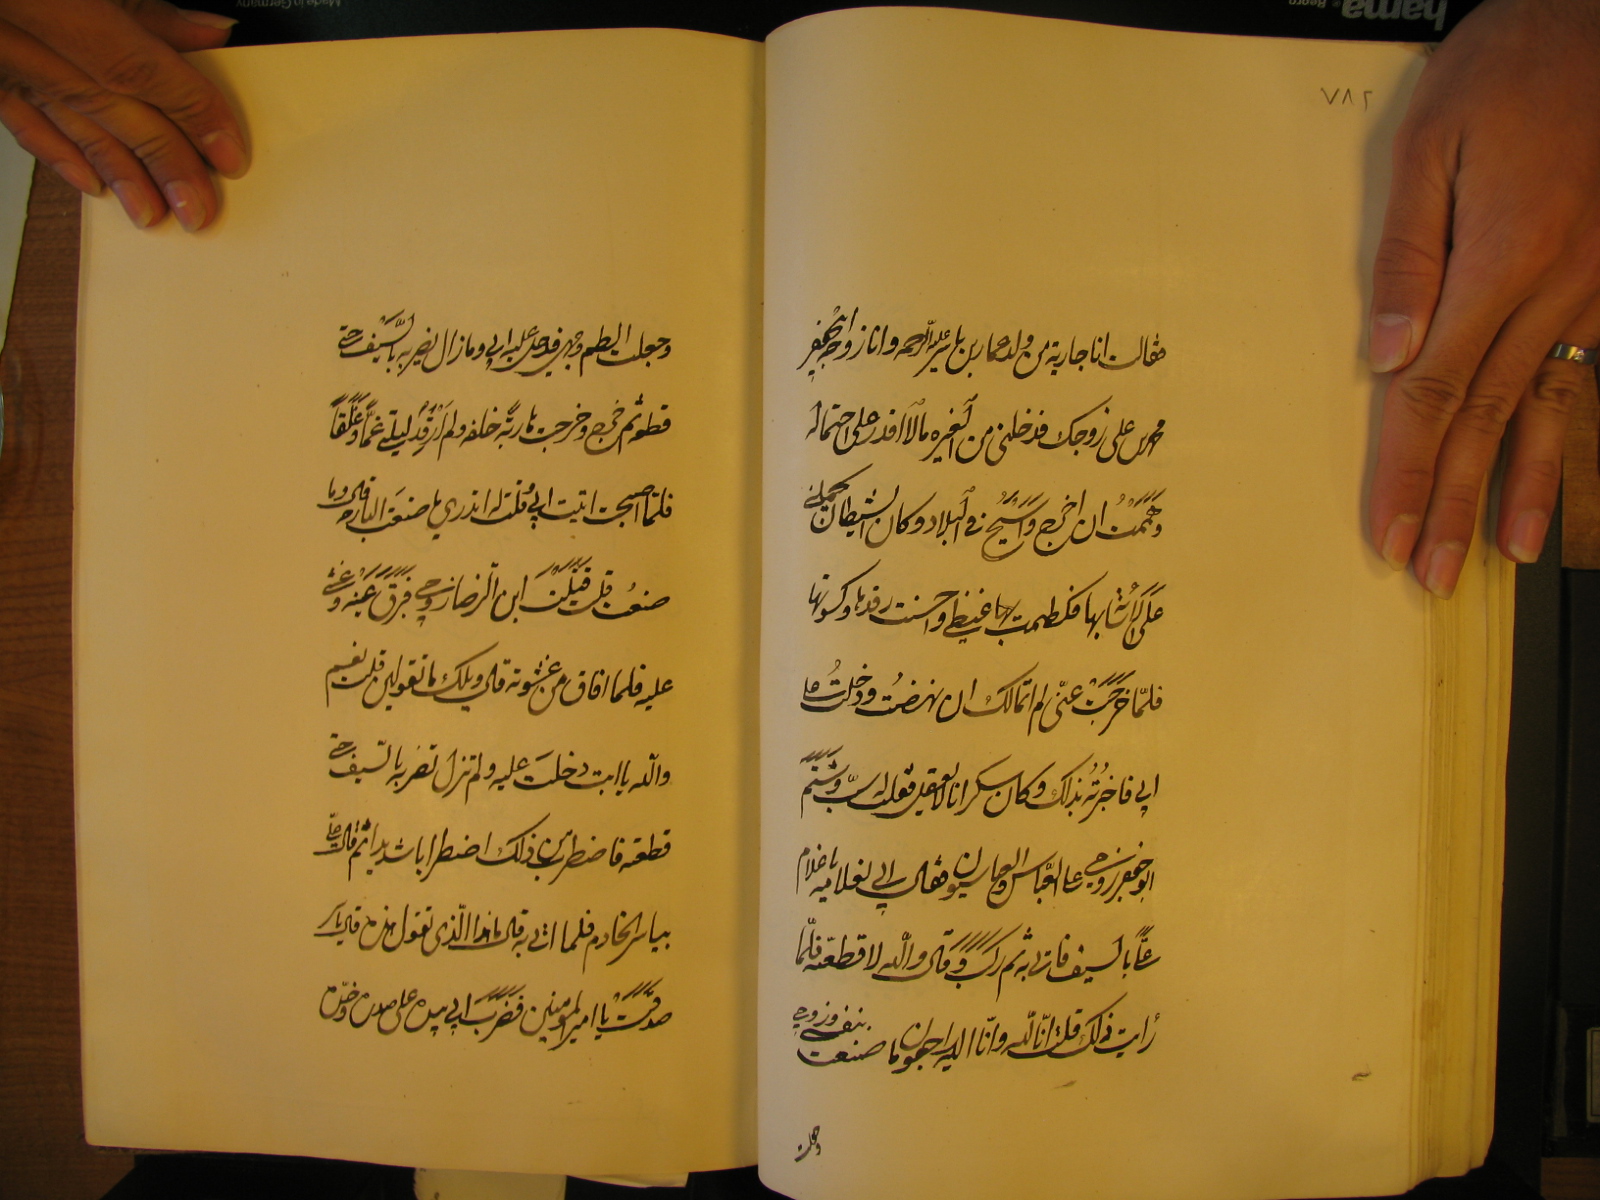 hama
٧٨٢
فقالت انا جارية من ولد عمار بن ياسر عليه الرحمه وانا زوجة ابي جعفر
محمد بن علي زوجك فدخلني من الغيره مالا اقدر على احتماله
وهممت ان اخرج واسيح في البلاد وكان الشيطان يحملني
على الاشا بها فكظمت غيظي واحسنت رفدها وكسوتها
فلما خرجت عني لم اتمالك ان نهضت ودخلت على
ابي فاخبرته بذلك وكان سكرانا لا يعقل
ابو جعفر زوجي عالعباس فقال ابي لغلاميه يا غلام
عليّ بالسيف فاتي به ثم ركب وقال والله لاقطعنه فلما
رايت ذلك قلت انا لله وانا اليه راجعون ما صنعت بنفسي وزوجي
وجعلت
وجعلت الطم وجهي فدخل عليه ابي وما زال يضربه بالسيف حتى
قطعه ثم خرج وخرجت هاربة خلفه ولم ارقد ليلتي غما وقلقا
فلما اصبحت اتيت ابي وقلت له اتدري ما صنعت البارحه قال وما
صنعت قلت قتلت ابن الرضا زوجي فبرق عينه وغشي
عليه فلما افاق من غشوته قال ويلك ما تقولين قلت نعم
والله يا ابت دخلت عليه ولم تزل تضربه بالسيف حتى
قطعته فاضطرب من ذلك اضطرابا شديدا ثم قال عليّ
بياسر الخادم فلما اتي به قال ما هذا الذي تقول هذه قال ياسر
صدقت يا امير المؤمنين فضرب ابي بيده على صدره وخده